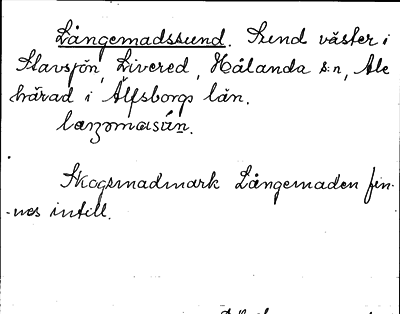 Långemadssund. Sund väster i
Stavsjön, Livered, Hålanda s:n, Ale
härad i Älfsborgs län.
Skogsmadmark Långemaden fin-
-nes intill.